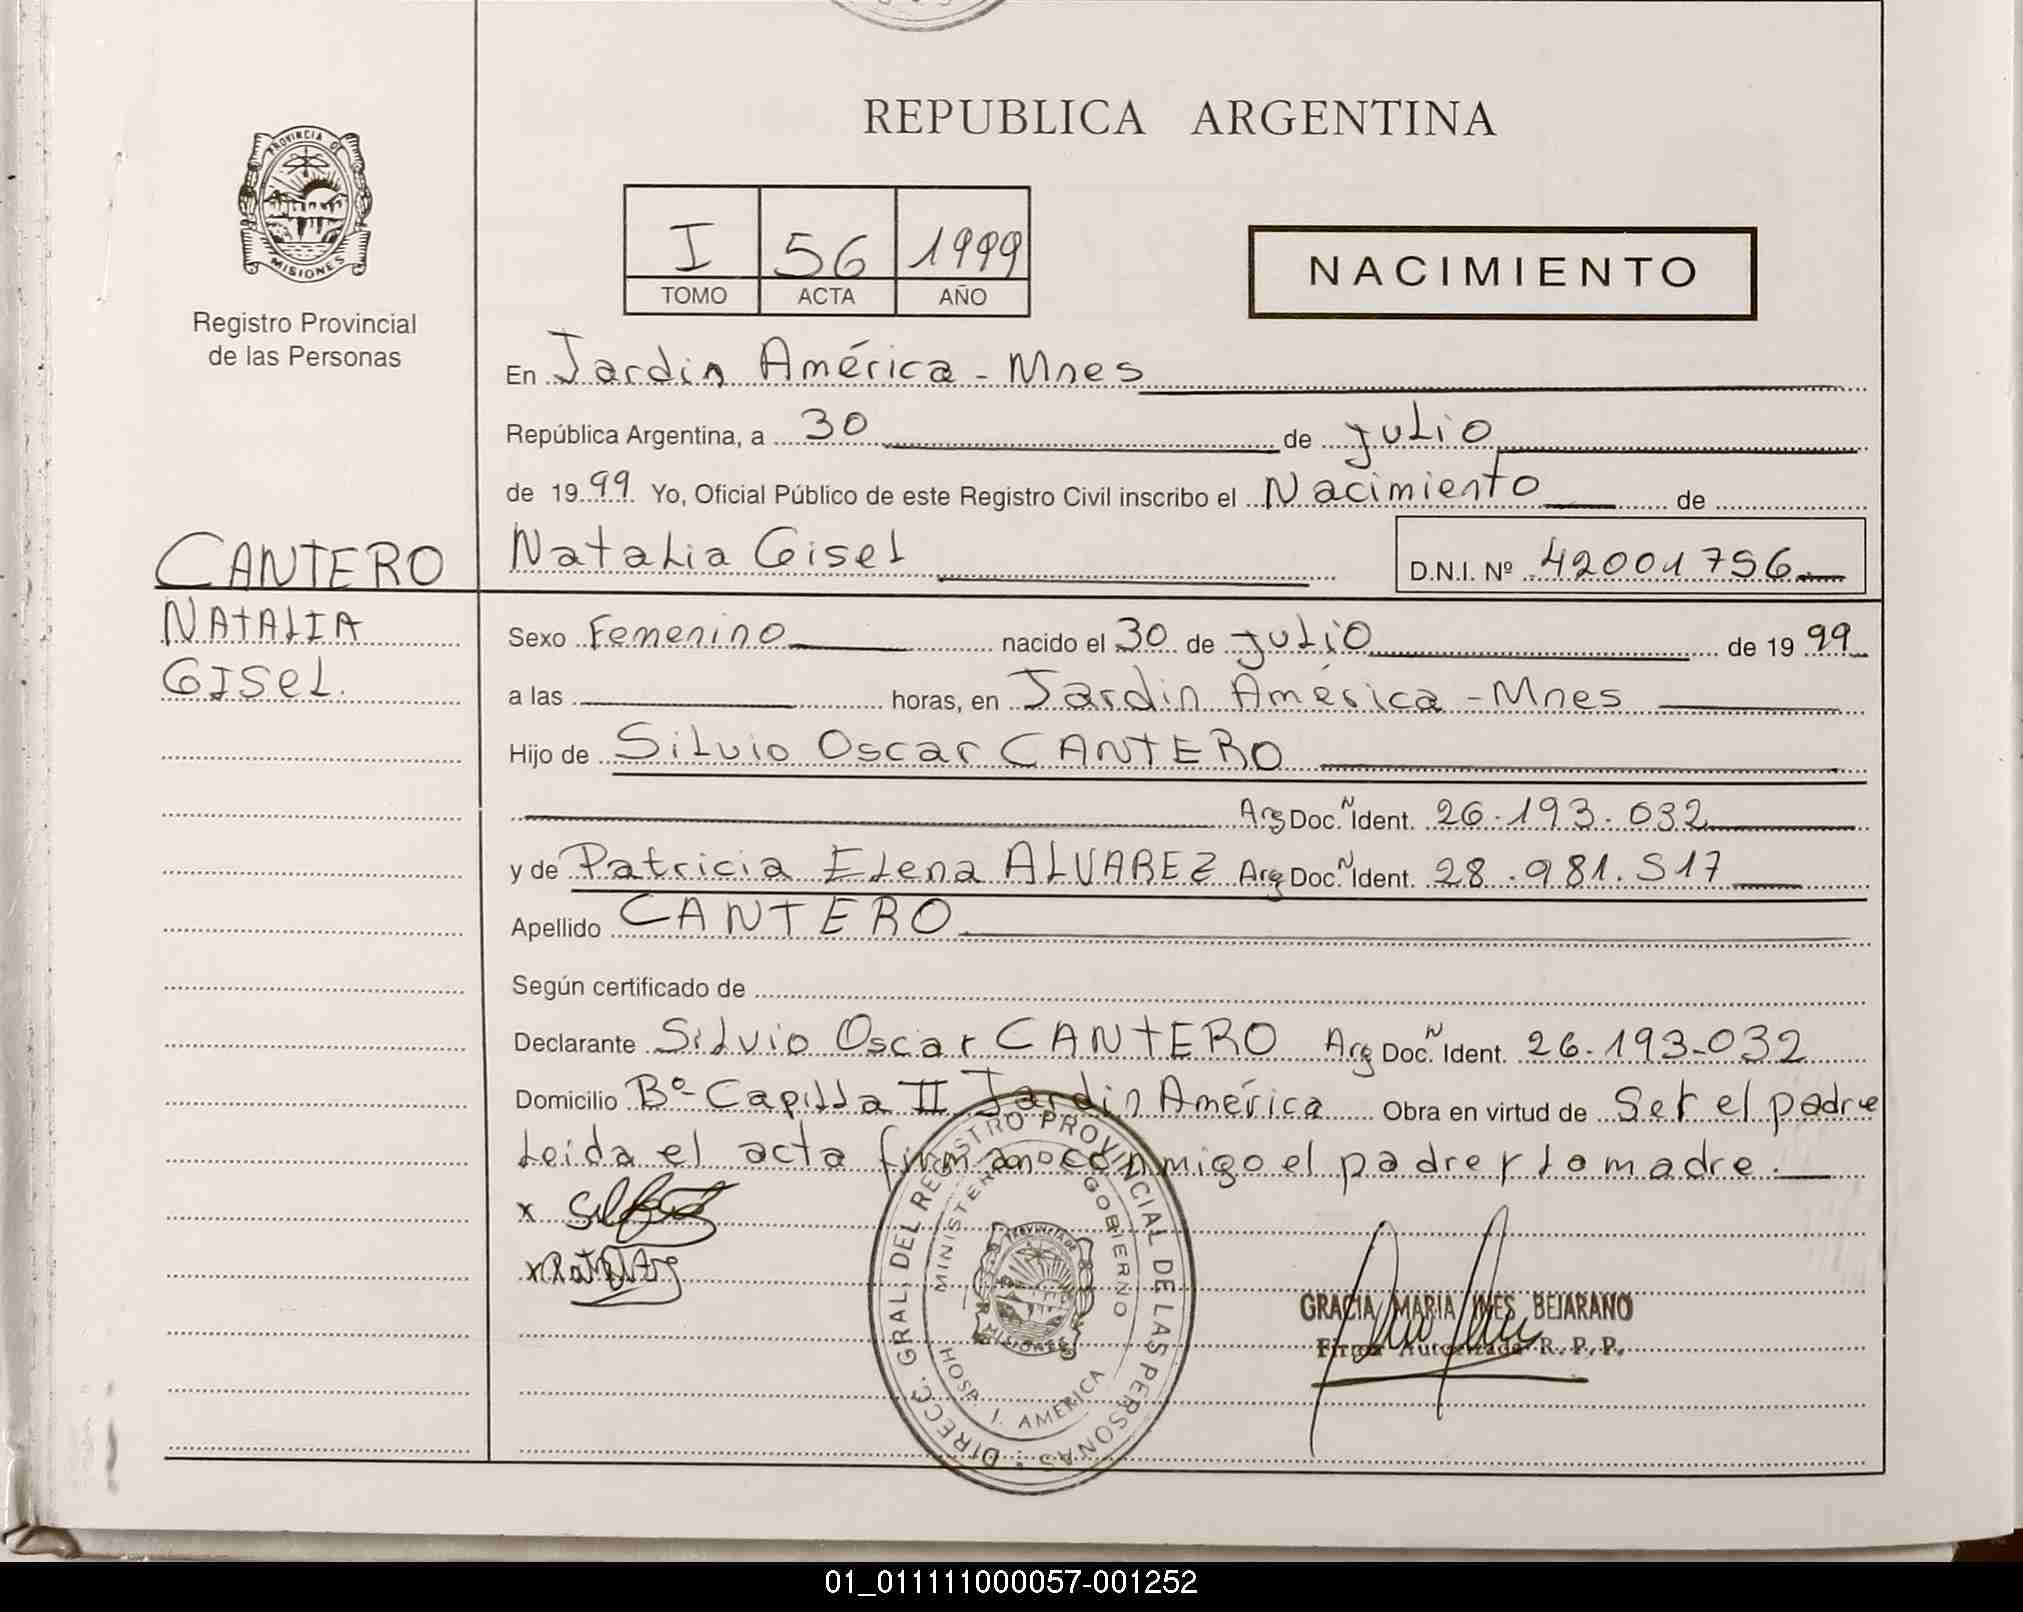 REPUBLICA ARGENTINA
PROVINCIA DE
MISIONES
Registro Provincial
de las Personas
I 56 1999
TOMO ACTA AÑO
NACIMIENTO
En Jardin América - Mnes
República Argentina, a 30 de julio
de 1999 Yo, Oficial Público de este Registro Civil inscribo el Nacimiento de
Natalia Gisel
D.N.I. Nº 42001756
CANTERO
NATALIA
GISEL.
Sexo Femenino nacido el 30 de julio de 1999
a las horas, en Jardin América - Mnes
Hijo de Silvio Oscar CANTERO
Arg Doc. N Ident. 26.193.032
y de Patricia Elena ALVAREZ Arg Doc. N Ident. 28.981.517
Apellido CANTERO
Según certificado de
Declarante Silvio Oscar CANTERO Arg Doc. N Ident. 26.193.032
Domicilio Bº Capilla II Jardin América Obra en virtud de Ser el padre
Leida el acta firman conmigo el padre y la madre.
x
x
DIRECC. GRAL. DEL REGISTRO PROVINCIAL DE LAS PERSONAS
MINISTERIO GOBIERNO
PROVINCIA DE
MISIONES
HOSP. J. AMERICA
GRACIA MARIA INES BEJARANO
Firma Autorizada R. P. P.
01_011111000057-001252